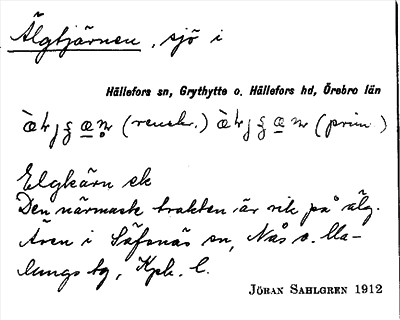 Älgtjärnen, sjö i
Hällefors sn, Grythytte o. Hällefors hd, Örebro län
(renskr.) (prim.)
Elgkärn ek
Den närmaste trakten är rik på älg.
Även i Säfsnäs sn, Nås o. Ma-
lungs tg, Kpb. l.
JÖHAN SAHLGREN 1912